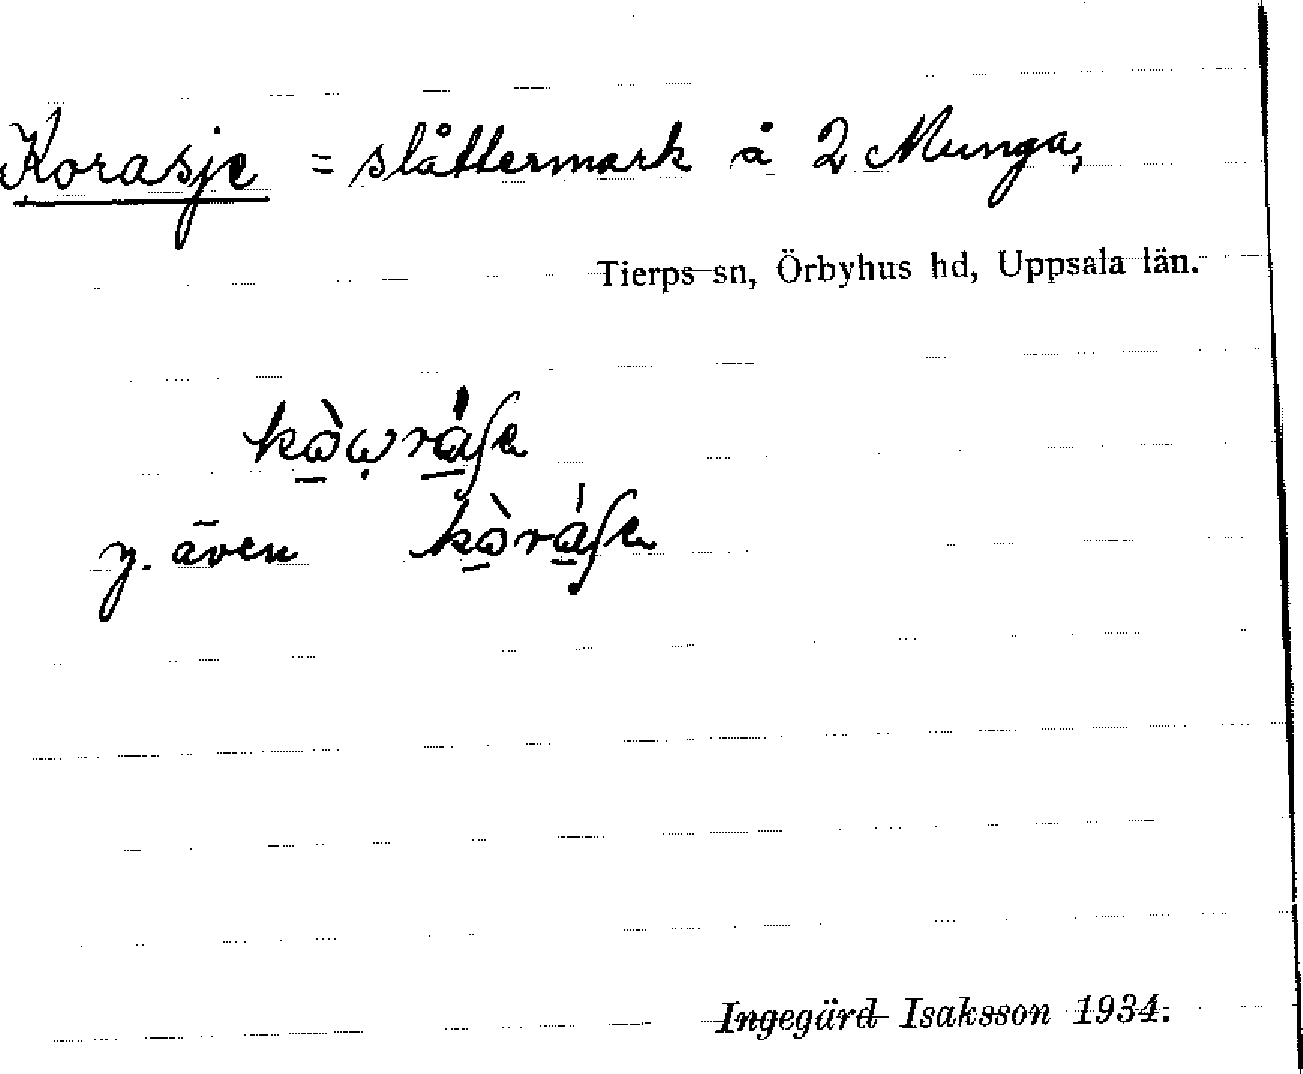 Korasje = slåttermark å 2 Munga;
Tierps sn, Örbyhus hd, Uppsala län.
y. även
Ingegärd Isaksson 1934.